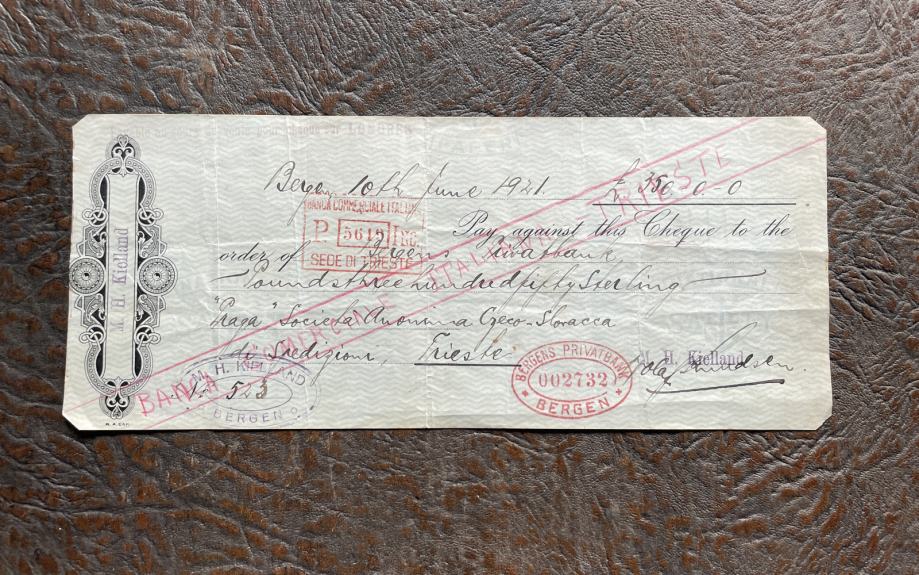 Bergen, 10th June 1921. £ 350-0-0
BANCA COMMERCIALE ITALIANA
P 5619 Inc.
SEDE DI TRIESTE
Pay against this Cheque to the
order of Bergens Privatbank,
Pounds three hundred fifty Sterling
"Praga" Società Anonima Czeco-Slovacca
di Spedizioni, Trieste
M. H. Kielland
BANCA COMMERCIALE ITALIANA TRIESTE
M. H. KIELLAND
No 523
BERGEN
BERGENS PRIVATBANK
002732
BERGEN
M. H. Kielland
Knudsen.